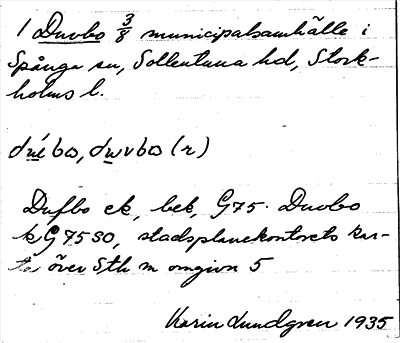 1 Duvbo 3/8 municipalsamhälle i
Spånga sn, Sollentuna hd, Stock-
holms l.
dúɛ́ bɷ, dɯvbɷ (r)
Dufbo ek, bek, G75. Duvbo
k G75SO, stadsplanekontorets kar-
ta över Sth m omgivn 5
Karin Lundgren 1935